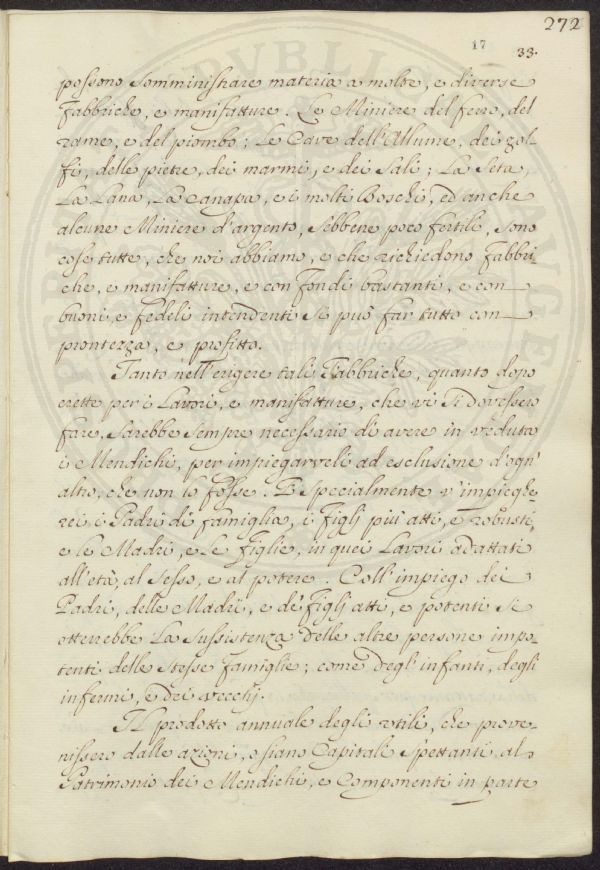 272
17
33.
possono somministrare materia a molte, e diverse
Fabbriche, e manifatture. Le Miniere del ferro, del
rame, e del piombo; Le Cave dell'Allume, dei zol-
fi, delle pietre, dei marmi, e dei Sali; La Seta,
La Lana, La Canapa, e i molti Boschi, ed anche
alcune Miniere d'argento, sebbene poco fertili, sono
cose tutte, che noi abbiamo, e che richiedono Fabbri-
che, e manifatture, e con fondi bastanti, e con
buoni e fedeli intendenti si può far tutto con
prontezza, e profitto.
Tanto nell'erigere tali Fabbriche, quanto dopo
erette per i Lavori, e manifatture, che vi si dovessero
fare, sarebbe sempre necessario di avere in veduta
i Mendichi, per impiegarveli ad esclusione d'ogn'
altro, che non lo fosse. E specialmente v'impieghe
rei i Padri di famiglia, i figli più atti, e robusti,
e le Madri, e Le figlie, in quei Lavori adattati
all'età, al sesso, e al potere. Coll'impiego dei
Padri, delle Madri, e de' figli atti, e potenti si
otterrebbe La sussistenza delle altre persone impo
tenti delle stesse famiglie; come degl'infanti, degli
infermi, e dei vecchj.
Il prodotto annuale degli utili, che prove-
nissero dalle azioni, o siano Capitali spettanti al
Patrimonio dei Mendichi, e Componenti in parte